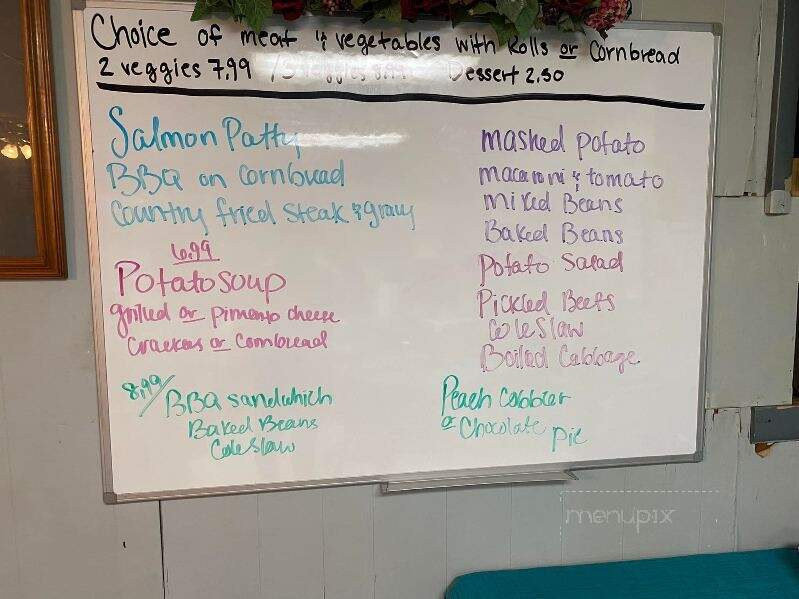 Choice of meat & vegetables with Rolls or Cornbread
2 veggies 7.99 /3 veggies 8.99 Dessert 2.50
Salmon Patty
BBQ on Cornbread
Country fried Steak & gravy
6.99
Potato soup
grilled or pimento cheese
Crackers or Cornbread
8.99/ BBQ sandwhich
Baked Beans
Cole Slaw
mashed potato
macaroni & tomato
mixed Beans
Baked Beans
Potato Salad
Pickled Beets
Cole Slaw
Boiled Cabbage
Peach Cobbler
or Chocolate Pie
menupix